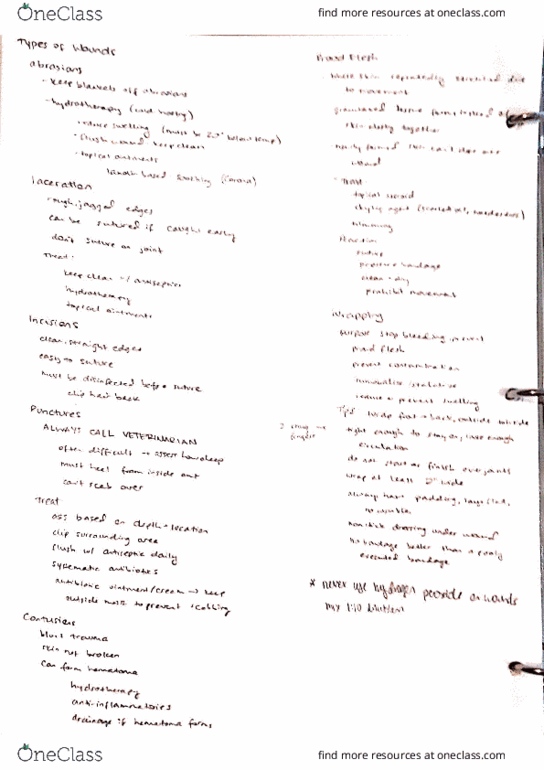 OneClass
find more resources at oneclass.com
Types of Wounds
abrasions
- keep blankets off abrasions
- hydrotherapy (cold hosing)
reduce swelling (must be 20° below temp)
topical ointments
lanolin based soothing (Corona)
laceration
- rough, jagged edges
can be sutured if caught early
don't suture on joint
Treat:
keep clean w/ antiseptics
hydrotherapy
topical ointments
Incisions
clean, straight edges
easy to suture
must be disinfected before suture
clip hair back
Punctures
ALWAYS CALL VETERINARIAN
often difficult to assess how deep
must heal from inside out
can't scab over
Treat
based on depth + location
clip surrounding area
flush w/ antiseptic daily
systematic antibiotics
antibiotic ointment/cream → keep
outside moist to prevent scabbing
Contusions
blunt trauma
skin not broken
can form hematoma
hydrotherapy
anti-inflammatories
drainage if hematoma forms
Proud Flesh
where skin repeatedly disrupted due
to movement
granulated tissue forms instead of
skin
newly formed skin can't close over
wound
Treat
topical steroid
trimming
suture
pressure bandage
clean + dry
prohibit movement
Wrapping
purpose stop bleeding, prevent
proud flesh
prevent contamination
immobilize
reduce + prevent swelling
Tips wrap front → back, outside inside
tight enough to stay on, loose enough
circulation
do not start or finish over joints
wrap at least 2" wide
always have padding, layer flat,
no wrinkle
non stick dressing under wound
no bandage better than a poorly
executed bandage
* never use hydrogen peroxide on wounds
1:10 dilution
OneClass
find more resources at oneclass.com